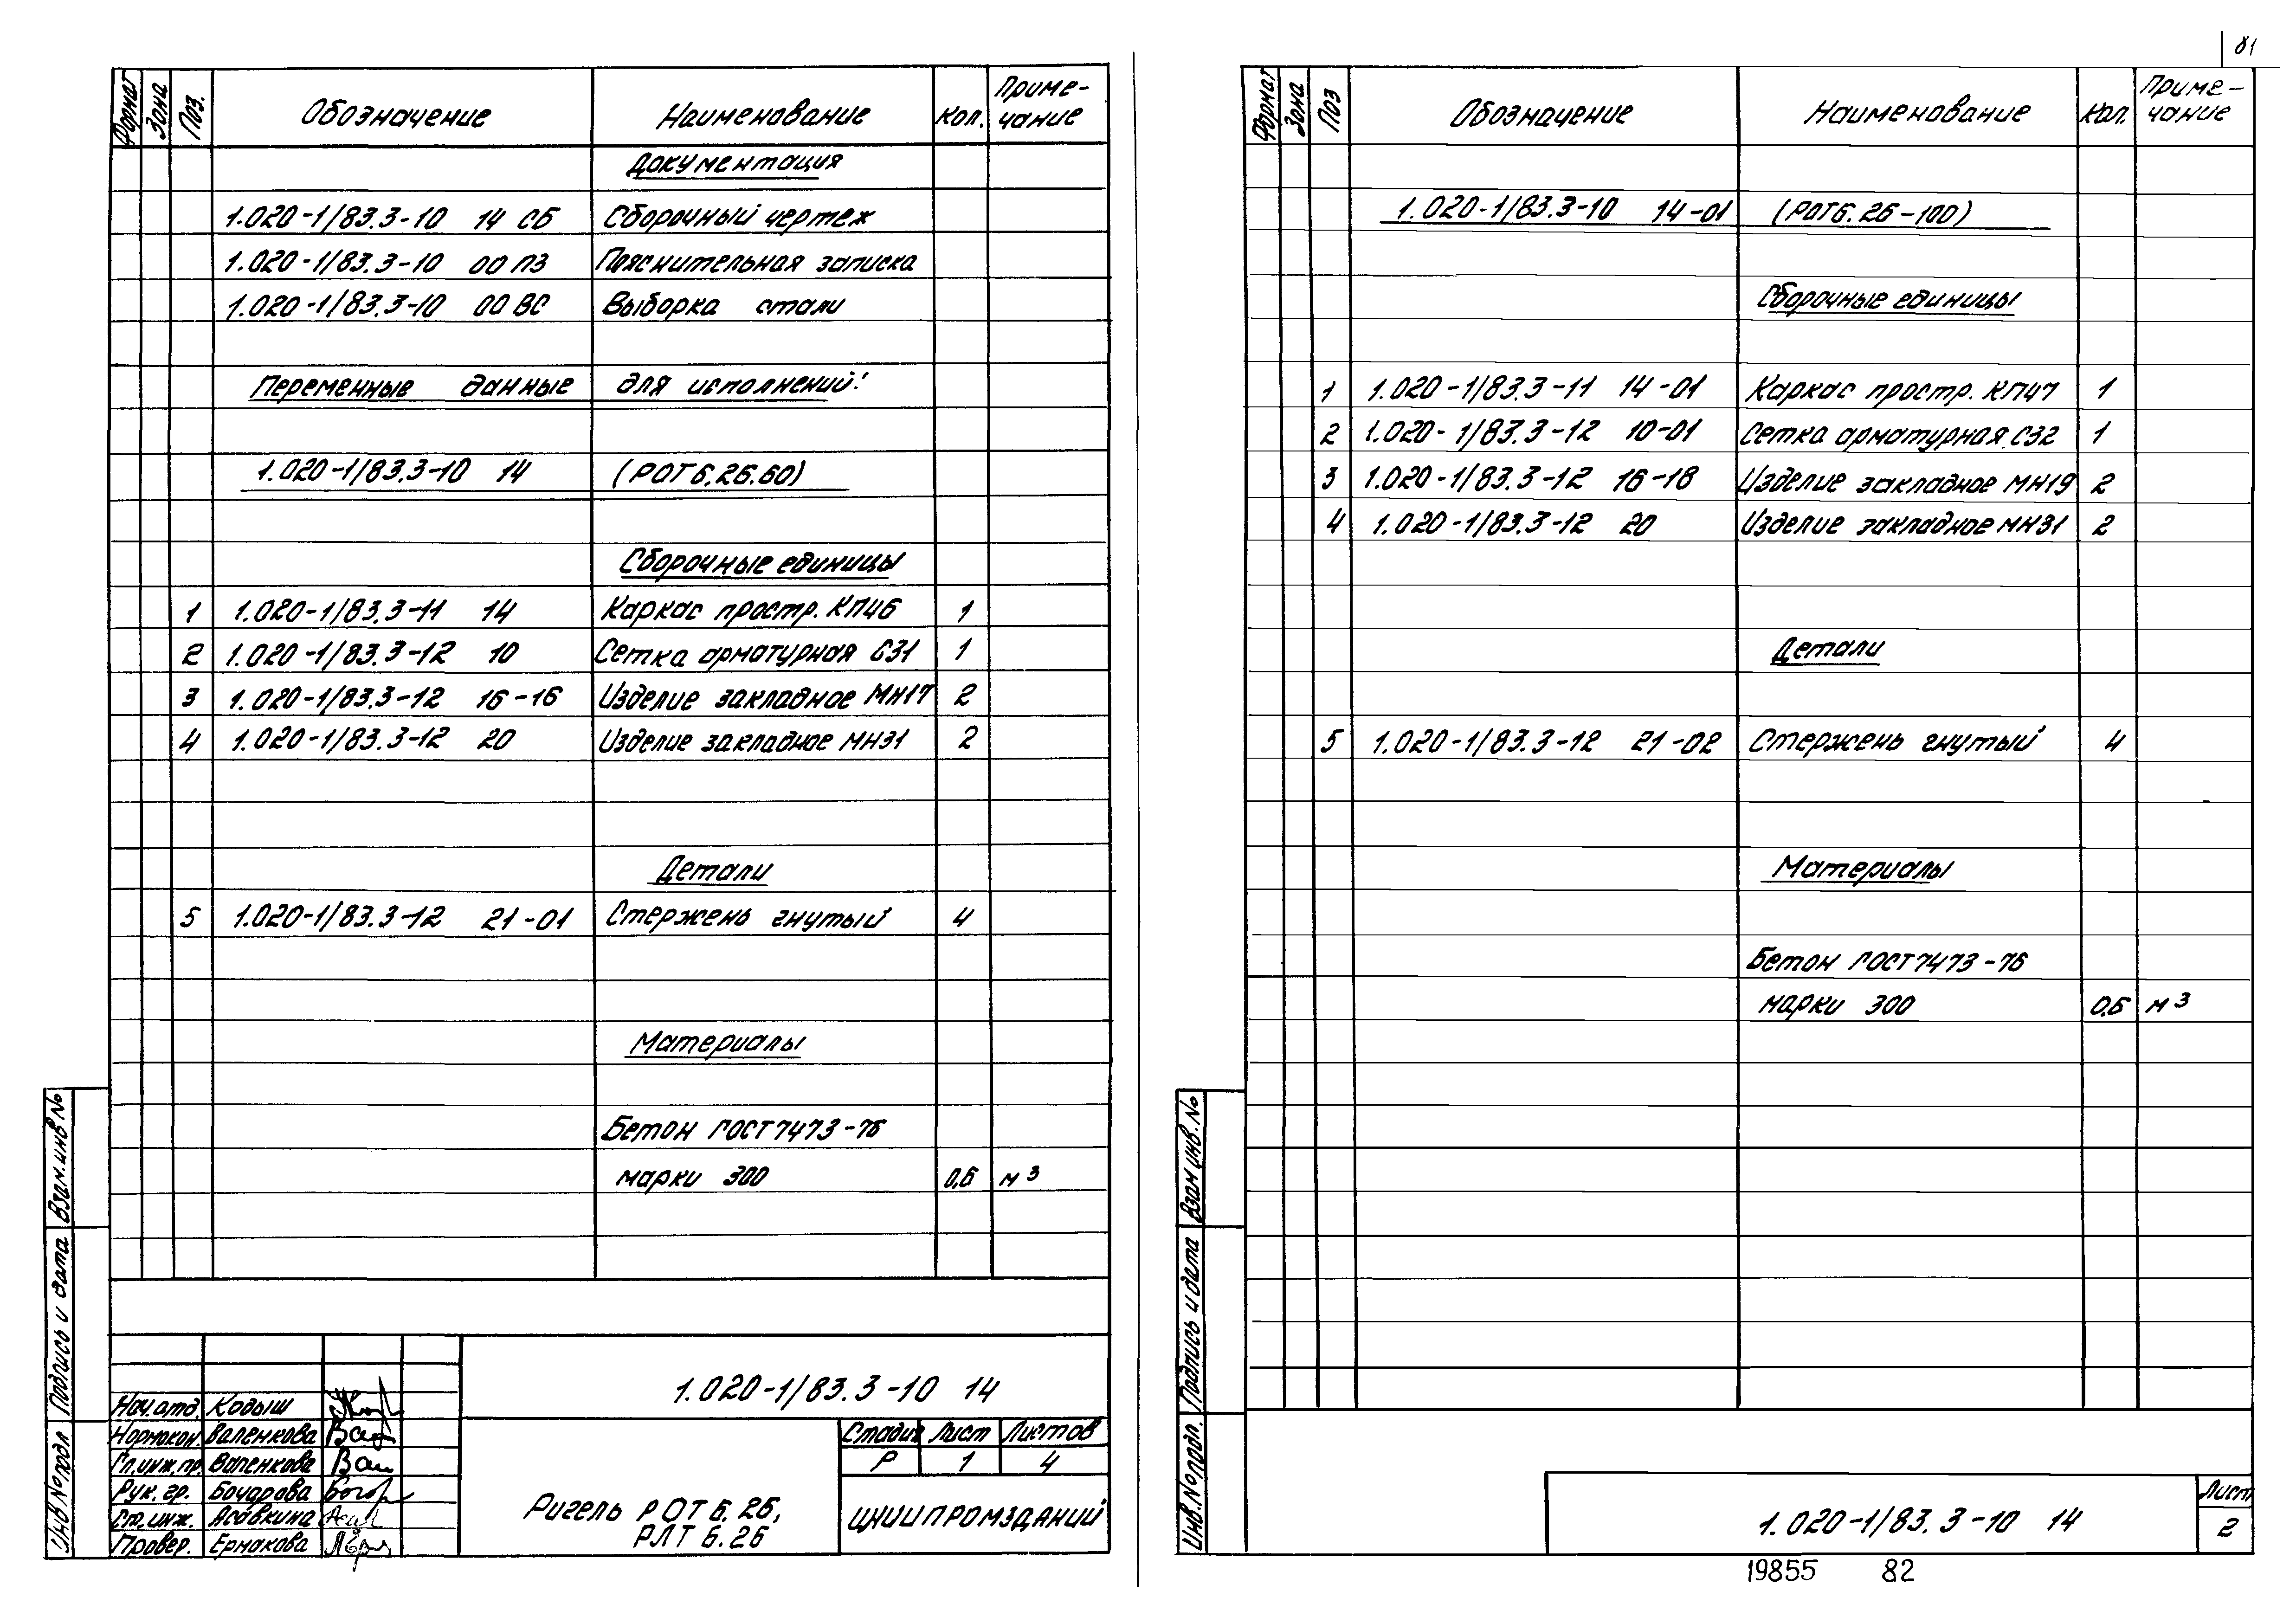 81
Формат Зона Поз. Обозначение Наименование Кол. Приме-
чание
Документация
1.020-1/83.3-10 14 СБ Сборочный чертеж
1.020-1/83.3-10 00 ПЗ Пояснительная записка
1.020-1/83.3-10 00 ВС Выборка стали
Переменные данные для исполнений:
1.020-1/83.3-10 14 (РОТ6.26.60)
Сборочные единицы
1 1.020-1/83.3-11 14 Каркас простр. КП46 1
2 1.020-1/83.3-12 10 Сетка арматурная С31 1
3 1.020-1/83.3-12 16-16 Изделие закладное МН17 2
4 1.020-1/83.3-12 20 Изделие закладное МН31 2
Детали
5 1.020-1/83.3-12 21-01 Стержень гнутый 4
Материалы
Бетон ГОСТ 7473-76
марки 300 0,6 м³
Взам. инв №
Подпись и дата
Инв № подл
1.020-1/83.3-10 14
Нач.отд. Кодыш
Нормокон. Валенкова
Гл.инж.пр. Валенкова
Рук. гр. Бочарова
Ст.инж. Асавкина
Провер. Ермакова
Ригель РОТ 6.26,
РЛТ 6.26
Стадия Лист Листов
Р 1 4
ЦНИИПРОМЗДАНИЙ
Формат Зона Поз Обозначение Наименование Кол. Приме-
чание
1.020-1/83.3-10 14-01 (РОТ6.26-100)
Сборочные единицы
1 1.020-1/83.3-11 14-01 Каркас простр. КП47 1
2 1.020-1/83.3-12 10-01 Сетка арматурная С32 1
3 1.020-1/83.3-12 16-18 Изделие закладное МН19 2
4 1.020-1/83.3-12 20 Изделие закладное МН31 2
Детали
5 1.020-1/83.3-12 21-02 Стержень гнутый 4
Материалы
Бетон ГОСТ 7473-76
марки 300 0,6 м³
Взам инв. №
Подпись и дата
Инв. № подл.
1.020-1/83.3-10 14
Лист
2
19855 82